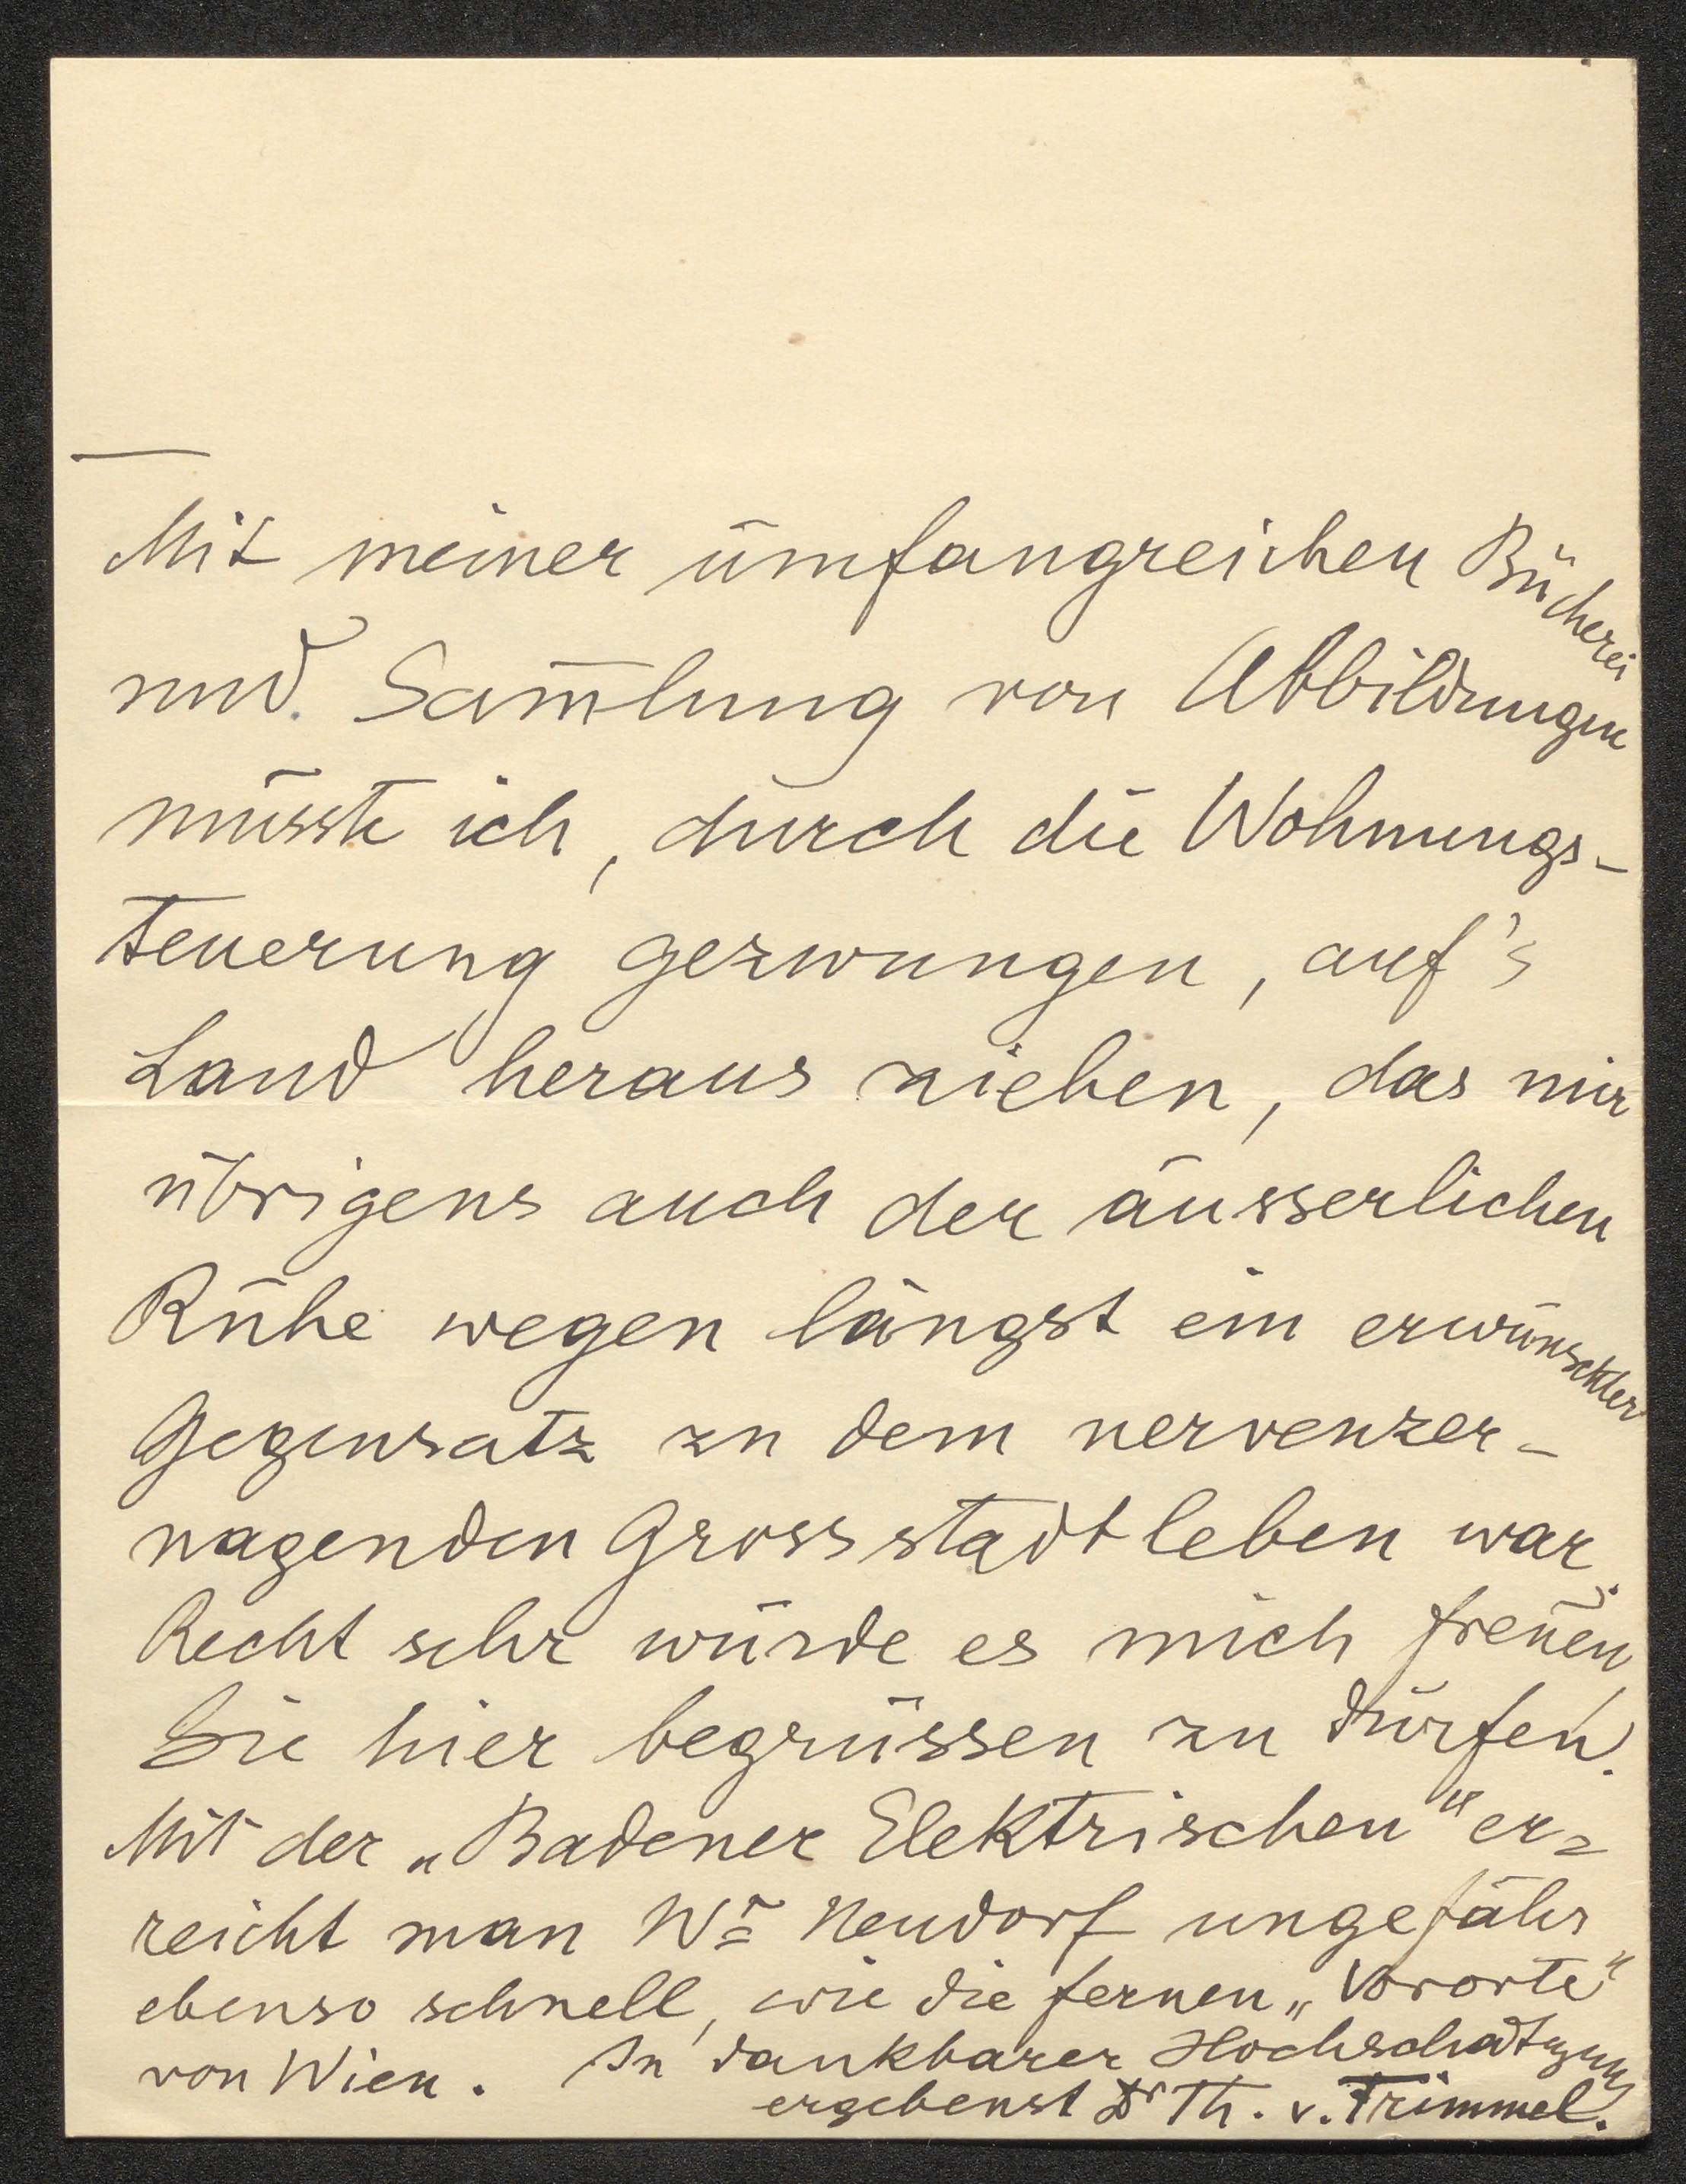 Mit meiner umfangreichen Bücherei
und Sam̅lung von Abbildungen
musste ich, durch die Wohnungs-
teuerung gezwungen, auf's
Land heraus ziehen, das mir
übrigens auch der äusserlichen
Ruhe wegen längst ein erwünschter
Gegensatz zu dem nervenzer-
nagenden Grossstadtleben war.
Recht sehr würde es mich freuen,
Sie hier begrüssen zu dürfen.
Mit der „Badener Elektrischen" er=
reicht man Wr Neudorf ungefähr
ebenso schnell, wie die fernen „Vororte"
von Wien. In dankbarer Hochschätzung
ergebenst Dr Th. v. Frimmel.